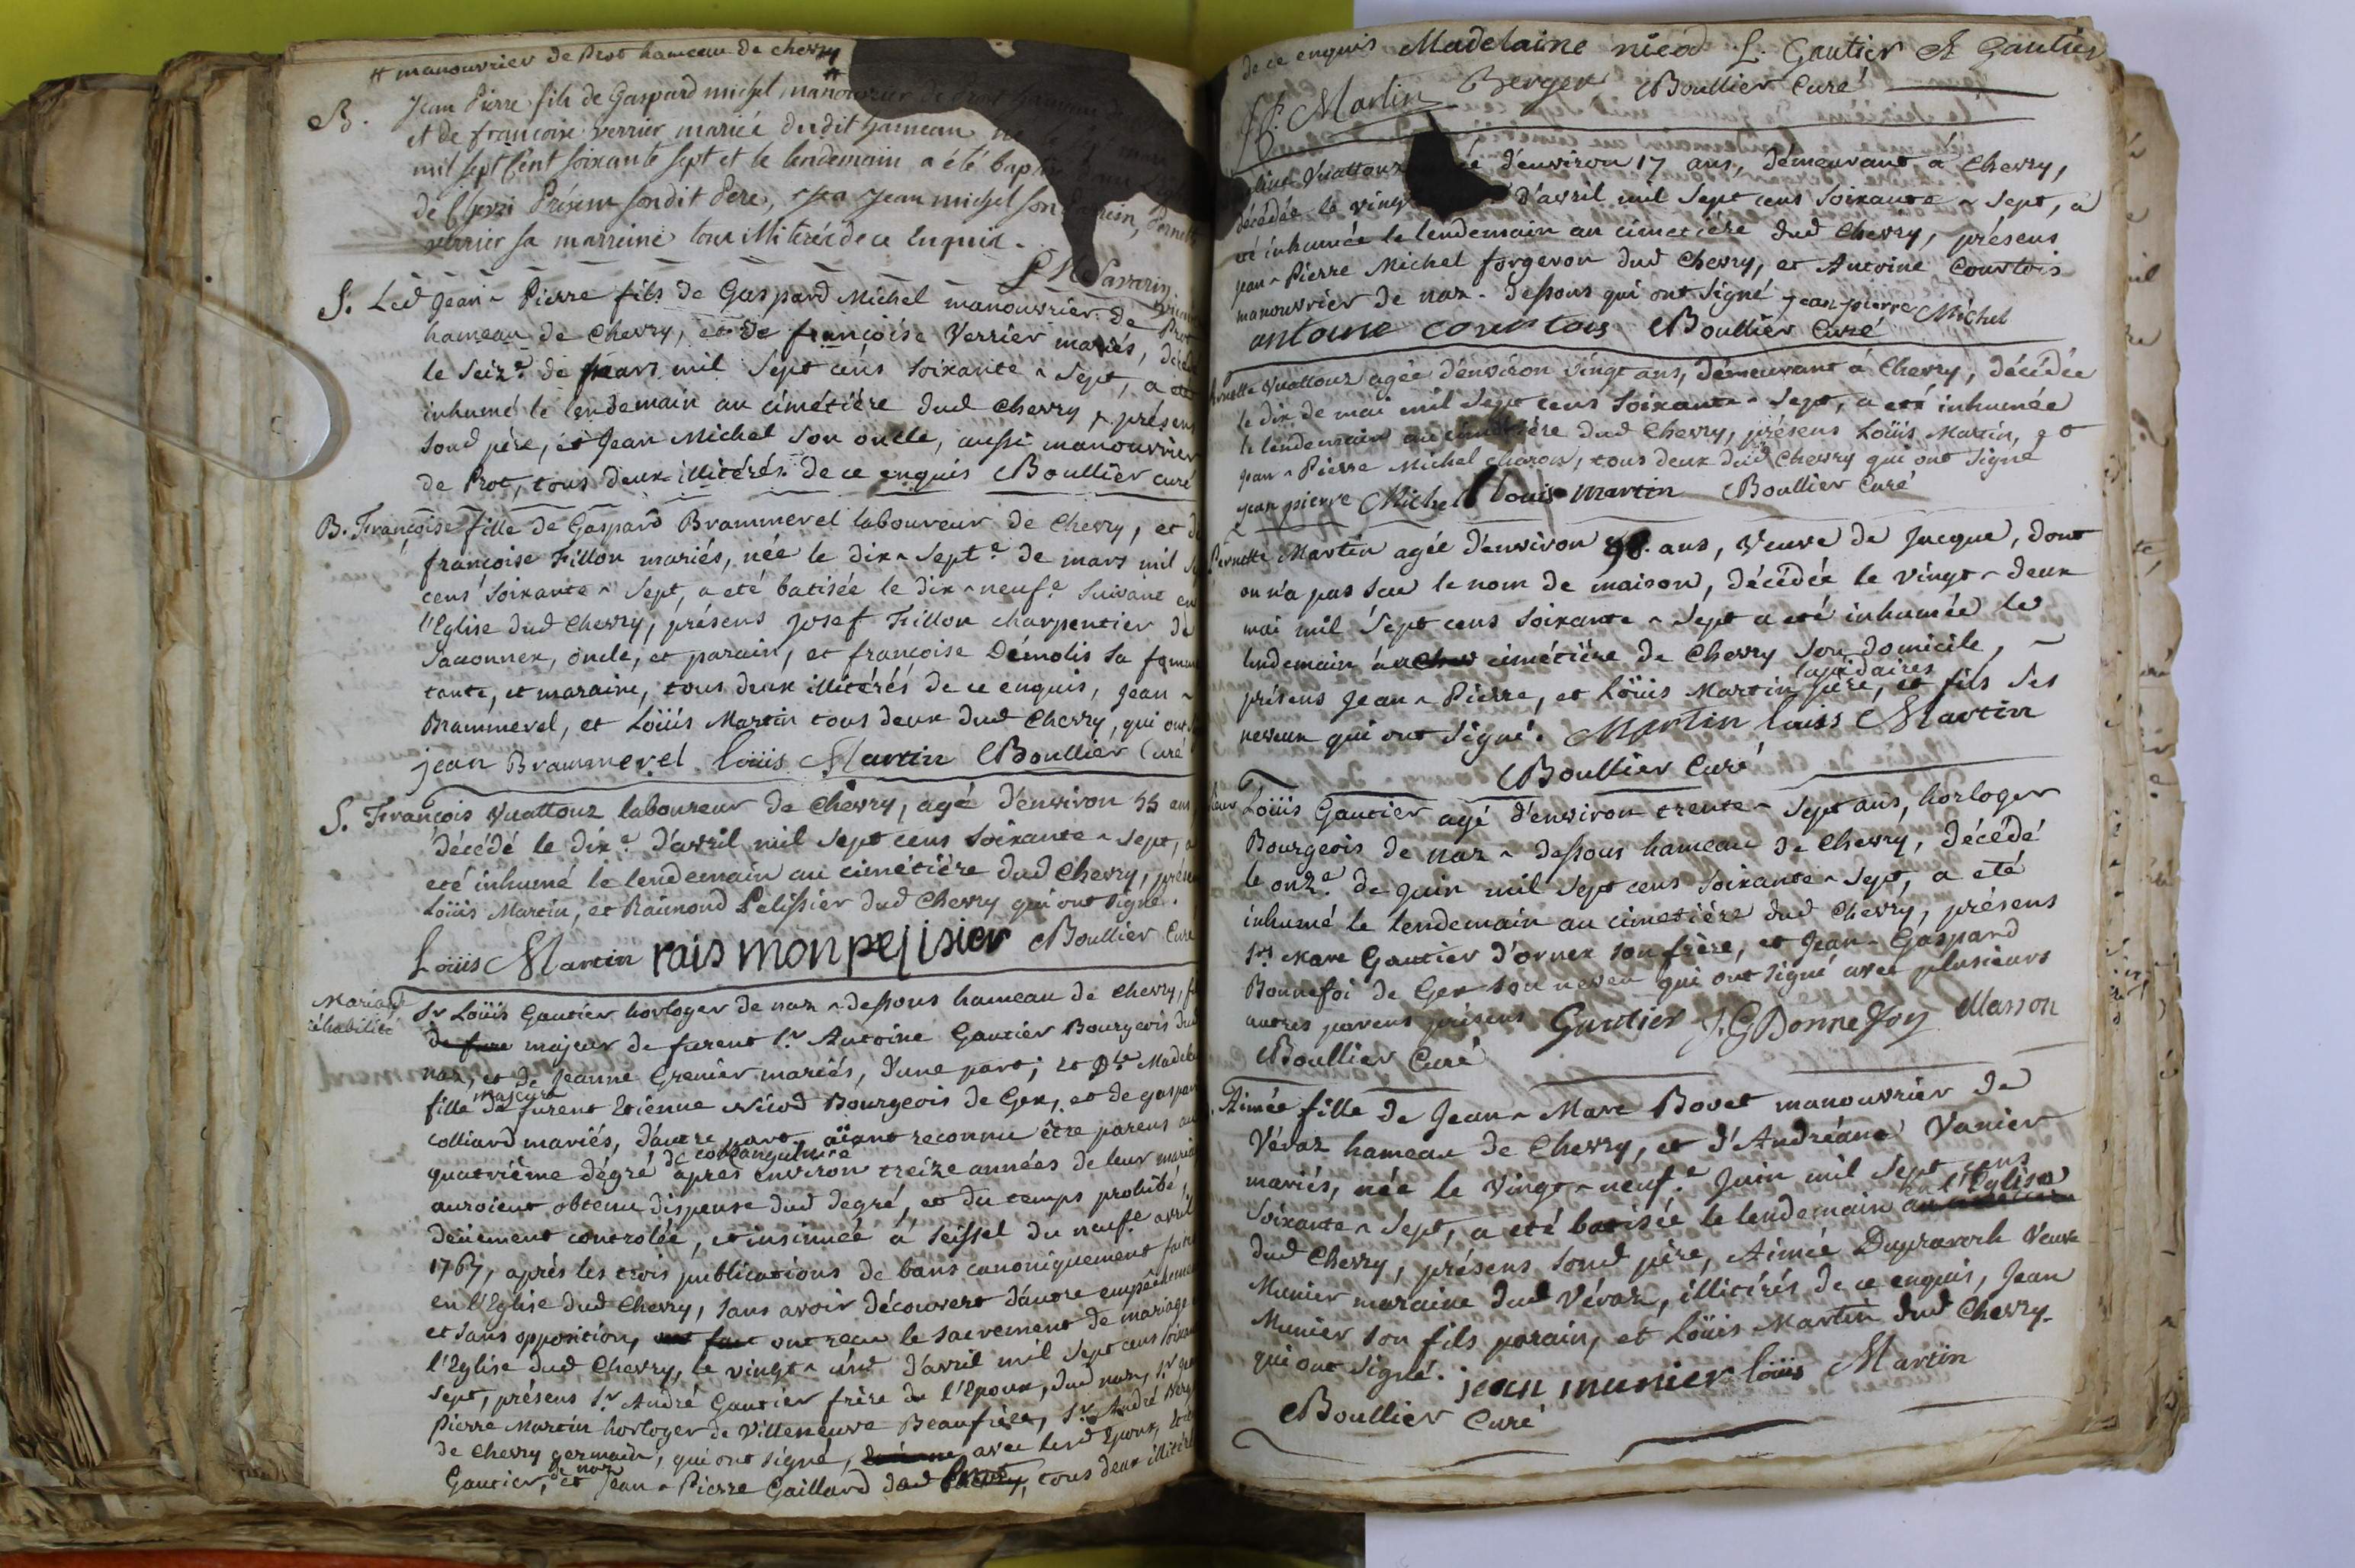 # manouvrier de Prot hameau de chevry
#
B. Jean Pierre fils de Gaspard michel manouvrier de Prost hameau de
et de francoise verrier mariés dudit hameau
mil sept Cent soixante sept et le lendemain a été baptisé
de Chevri Présent sondit Pere, Jean michel son Parrein, Pernette
verrier sa marreine tous illiterés de ce Enquis.
S. Led Jean-Pierre fils de Gaspard Michel manouvrier de Prot
hameau de Chevry, et de françoise Verrier mariés, décédé
le seiz.e de mars mil sept cens soixante-sept, a eté
inhumé le lendemain au cimétiére dud Chevry, présens
sond père, et Jean Michel son oncle, aussi manouvrier
de Prot, tous deux illitérés de ce enquis Boullier curé
B. Françoise fille de Gaspard Brammerel laboureur de Chevry, et de
françoise Fillon mariés, née le dix-sept.e de mars mil
cens soixante-sept, a eté batisée le dix-neuf.e suivant en
l'Eglise dud Chevry, présens Josef Fillon charpentier de
Sacconnex, oncle, et parain, et françoise Démolis sa femme
tante, et maraine, tous deux illitérés de ce enquis, Jean
Brammerel, et Loüis Martin tous deux dud Chevry, qui ont
jean Brammerel loüis Martin Boullier Curé
S. François Vuattoux laboureur de Chevry, agé d'environ 55 ans
décédé le dix.e d'avril mil sept cens soixante-sept, a
eté inhumé le lendemain au cimétiére dud Chevry, présens
Loüis Martin, et Raimond Pelissier dud Chevry qui ont signé.
Loüis Martin rais mon pelisier Boullier Curé
Mariage
réhabilité
Sr Loüis Gautier horloger de naz-dessous hameau de Chevry,
de fure majeur de furent Sr Antoine Gautier Bourgeois dud
naz, et de Jeanne Grenier mariés, d'une part; et Dlle Madelaine
majeure
fille de furent Etienne Nicod Bourgeois de Gex, et de gaspar
colliard mariés, d'autre part, aïant reconnu être parens au
de consanguinité
quatrième dégré après environ treize années de leur mariage
auroient obtenu dispense dud degré, et du temps prohibé,
deüement contrôlée, et insinuée à Seissel du neuf.e avril
1767, après les trois publications de bans canoniquement faites
en l'Eglise dud Chevry, sans avoir découvert d'autre empêchement
et sans opposition, ont fait ont reçu le sacrement de mariage
l'Eglise dud Chevry, le vingt-un.e d'avril mil sept cens soixante
sept, présens Sr André Gautier frère de l'Epoux, dud naz, Sr
Pierre Martin horloger de Villeneuve Beaufrère, Sr André
de Chevry germain, qui ont signé, avec lesd Epoux,
de naz
Gautier, et Jean-Pierre Gaillard dud Chevry, tous deux illitérés
de ce enquis Madelaine nicod L. Gautier A Gautier
J P. Martin Berger Boullier Curé
Vuattoux d'environ 17 ans, démeurant à Chevry,
décédée le ving d'avril mil sept cens soixante-sept, a
eté inhumée le lendemain au cimetiére dud Chevry, présens
jean-Pierre Michel forgeron dud Chevry, et Antoine Courtois
manouvrier de naz-dessous qui ont signé jean pierre Michel
antoine courtois Boullier Curé
Pernette Vuattoux agée d'environ vingt ans, démeurant à Chevry, décédée
le dix de mai mil sept cens soixante-sept, a eté inhumée
le lendemain au cimétiére dud Chevry, présens Loüis Martin, et
Jean-Pierre Michel charon, tous deux dud Chevry qui ont signé
jean pierre Michel louis martin Boullier Curé
Pernette Martin agée d'environ 98. ans, Veuve de Jacque, dont
on n'a pas sçu le nom de maison, décédée le vingt-deux
mai mil sept cens soixante-sept a eté inhumée le
lendemain au cimétiére de Chevry son domicile,
lapidaires
présens Jean-Pierre, et Loüis Martin père, et fils ses
neveux qui ont signé. Martin louis Martin
Boullier Curé
Loüis Gautier agé d'environ trente-sept ans, horloger
Bourgeois de naz-dessous hameau de Chevry, décédé
le onz.e de juin mil sept cens soixante-sept, a eté
inhumé le lendemain au cimetiére dud Chevry, présens
Srs Marc Gautier d'ornex son frère, et Jean-Gaspard
Bonnefoi de Gex son neveu qui ont signé avec plusieurs
autres parens présens Gautier J. G Bonnefoy Masson
Boullier Curé
Aimée fille de Jean-Marc Bovet manouvrier de
Véraz hameau de Chevry, et d'Andréane Vanier
mariés, née le vingt-neuf.e juin mil sept cens
en l'Eglise
soixante-sept, a eté batisée le lendemain
dud Chevry, présens sond père, Aimée Dupravoch Veuve
Munier maraine dud Véraz, illitérés de ce enquis, Jean
Munier son fils parain, et Loüis Martin dud Chevry
qui ont signé. jean munier loüis Martin
Boullier Curé